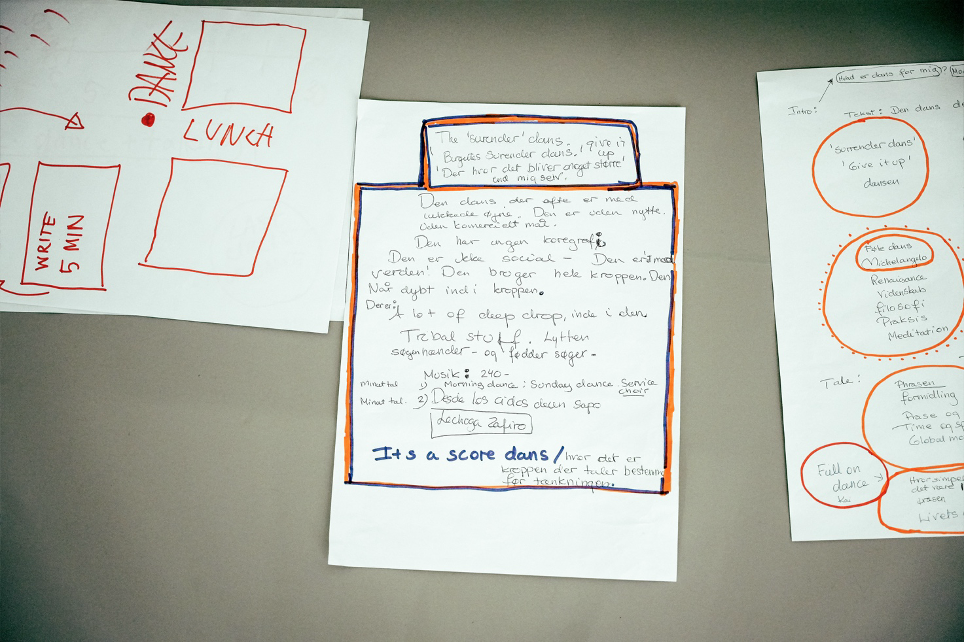 DANCE
LUNCH
WRITE
5 MIN
The 'surender' dans. 'give it
Burgules Surender dans.' up
'Der hvor det bliver noget større
end mig selv.
Den dans der ofte er med
lukkede øjne. Den er uden nytte.
Uden komercielt mål.
Den har ingen koregrafi
Den er Ikke social - Den er
verden! Den bruger hele kroppen. Den
Når dybt ind i kroppen.
A lot of deep drop, inde i den.
Trabal stuff. Lytten
søgenhænder - og fødder søger -
Musik: 240 -
Minat tal 1) Morning dance: Sunday dance Service
choir
Minat tal. 2) Desde los aidos decen Sapo
Lechoga Zafiro
It's a score dans / hvor det er
kroppen der taler bestemt
før tænkningen.
Hvad er dans for mig?
Intro:
Tekst: Den dans
'Surrender dans'
'Give it up'
dansen
Michelangelo
Renaissance
Videnskab
filosofi
Praksis
Meditation
Tale:
Phrasen
formidling
Phase og
Time og
Global
Full on
dance
det
frasen
Livets